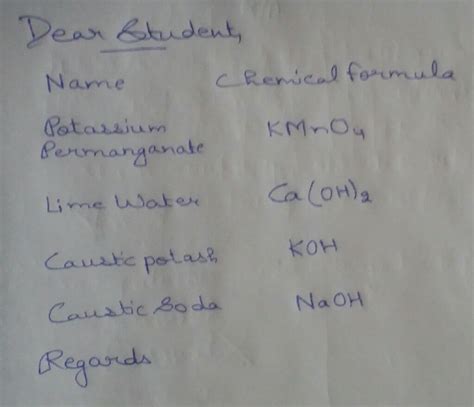 Dear Student,
Name Chemical formula
Potassium
Permanganate KMnO4
Lime Water Ca(OH)2
Caustic potash KOH
Caustic Soda NaOH
Regards